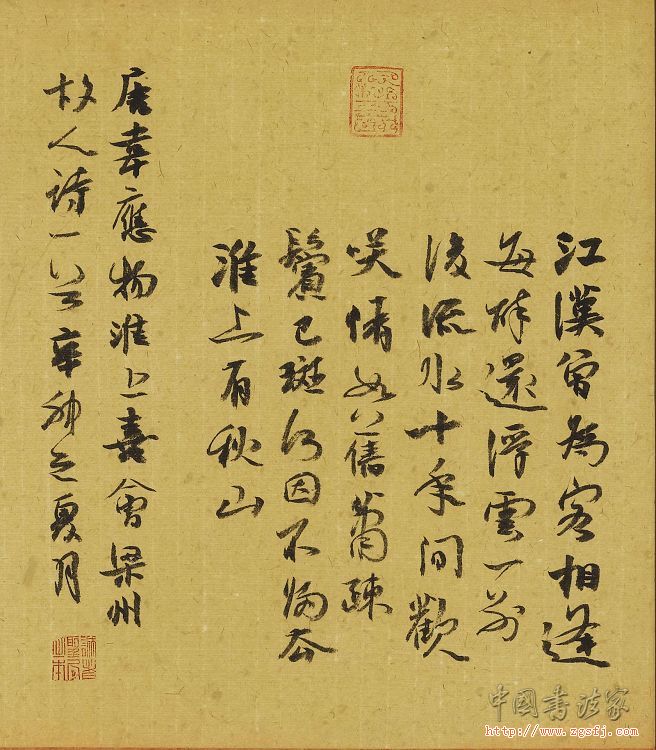 江漢曾為客相逢
每醉還浮雲一別
後流水十年間歡
笑情如舊蕭疎
鬢已斑何因不歸去
淮上有秋山
唐韋應物淮上喜會梁州
故人詩一首辛卯之夏月
中國書法家
http://www.zgsfj.com